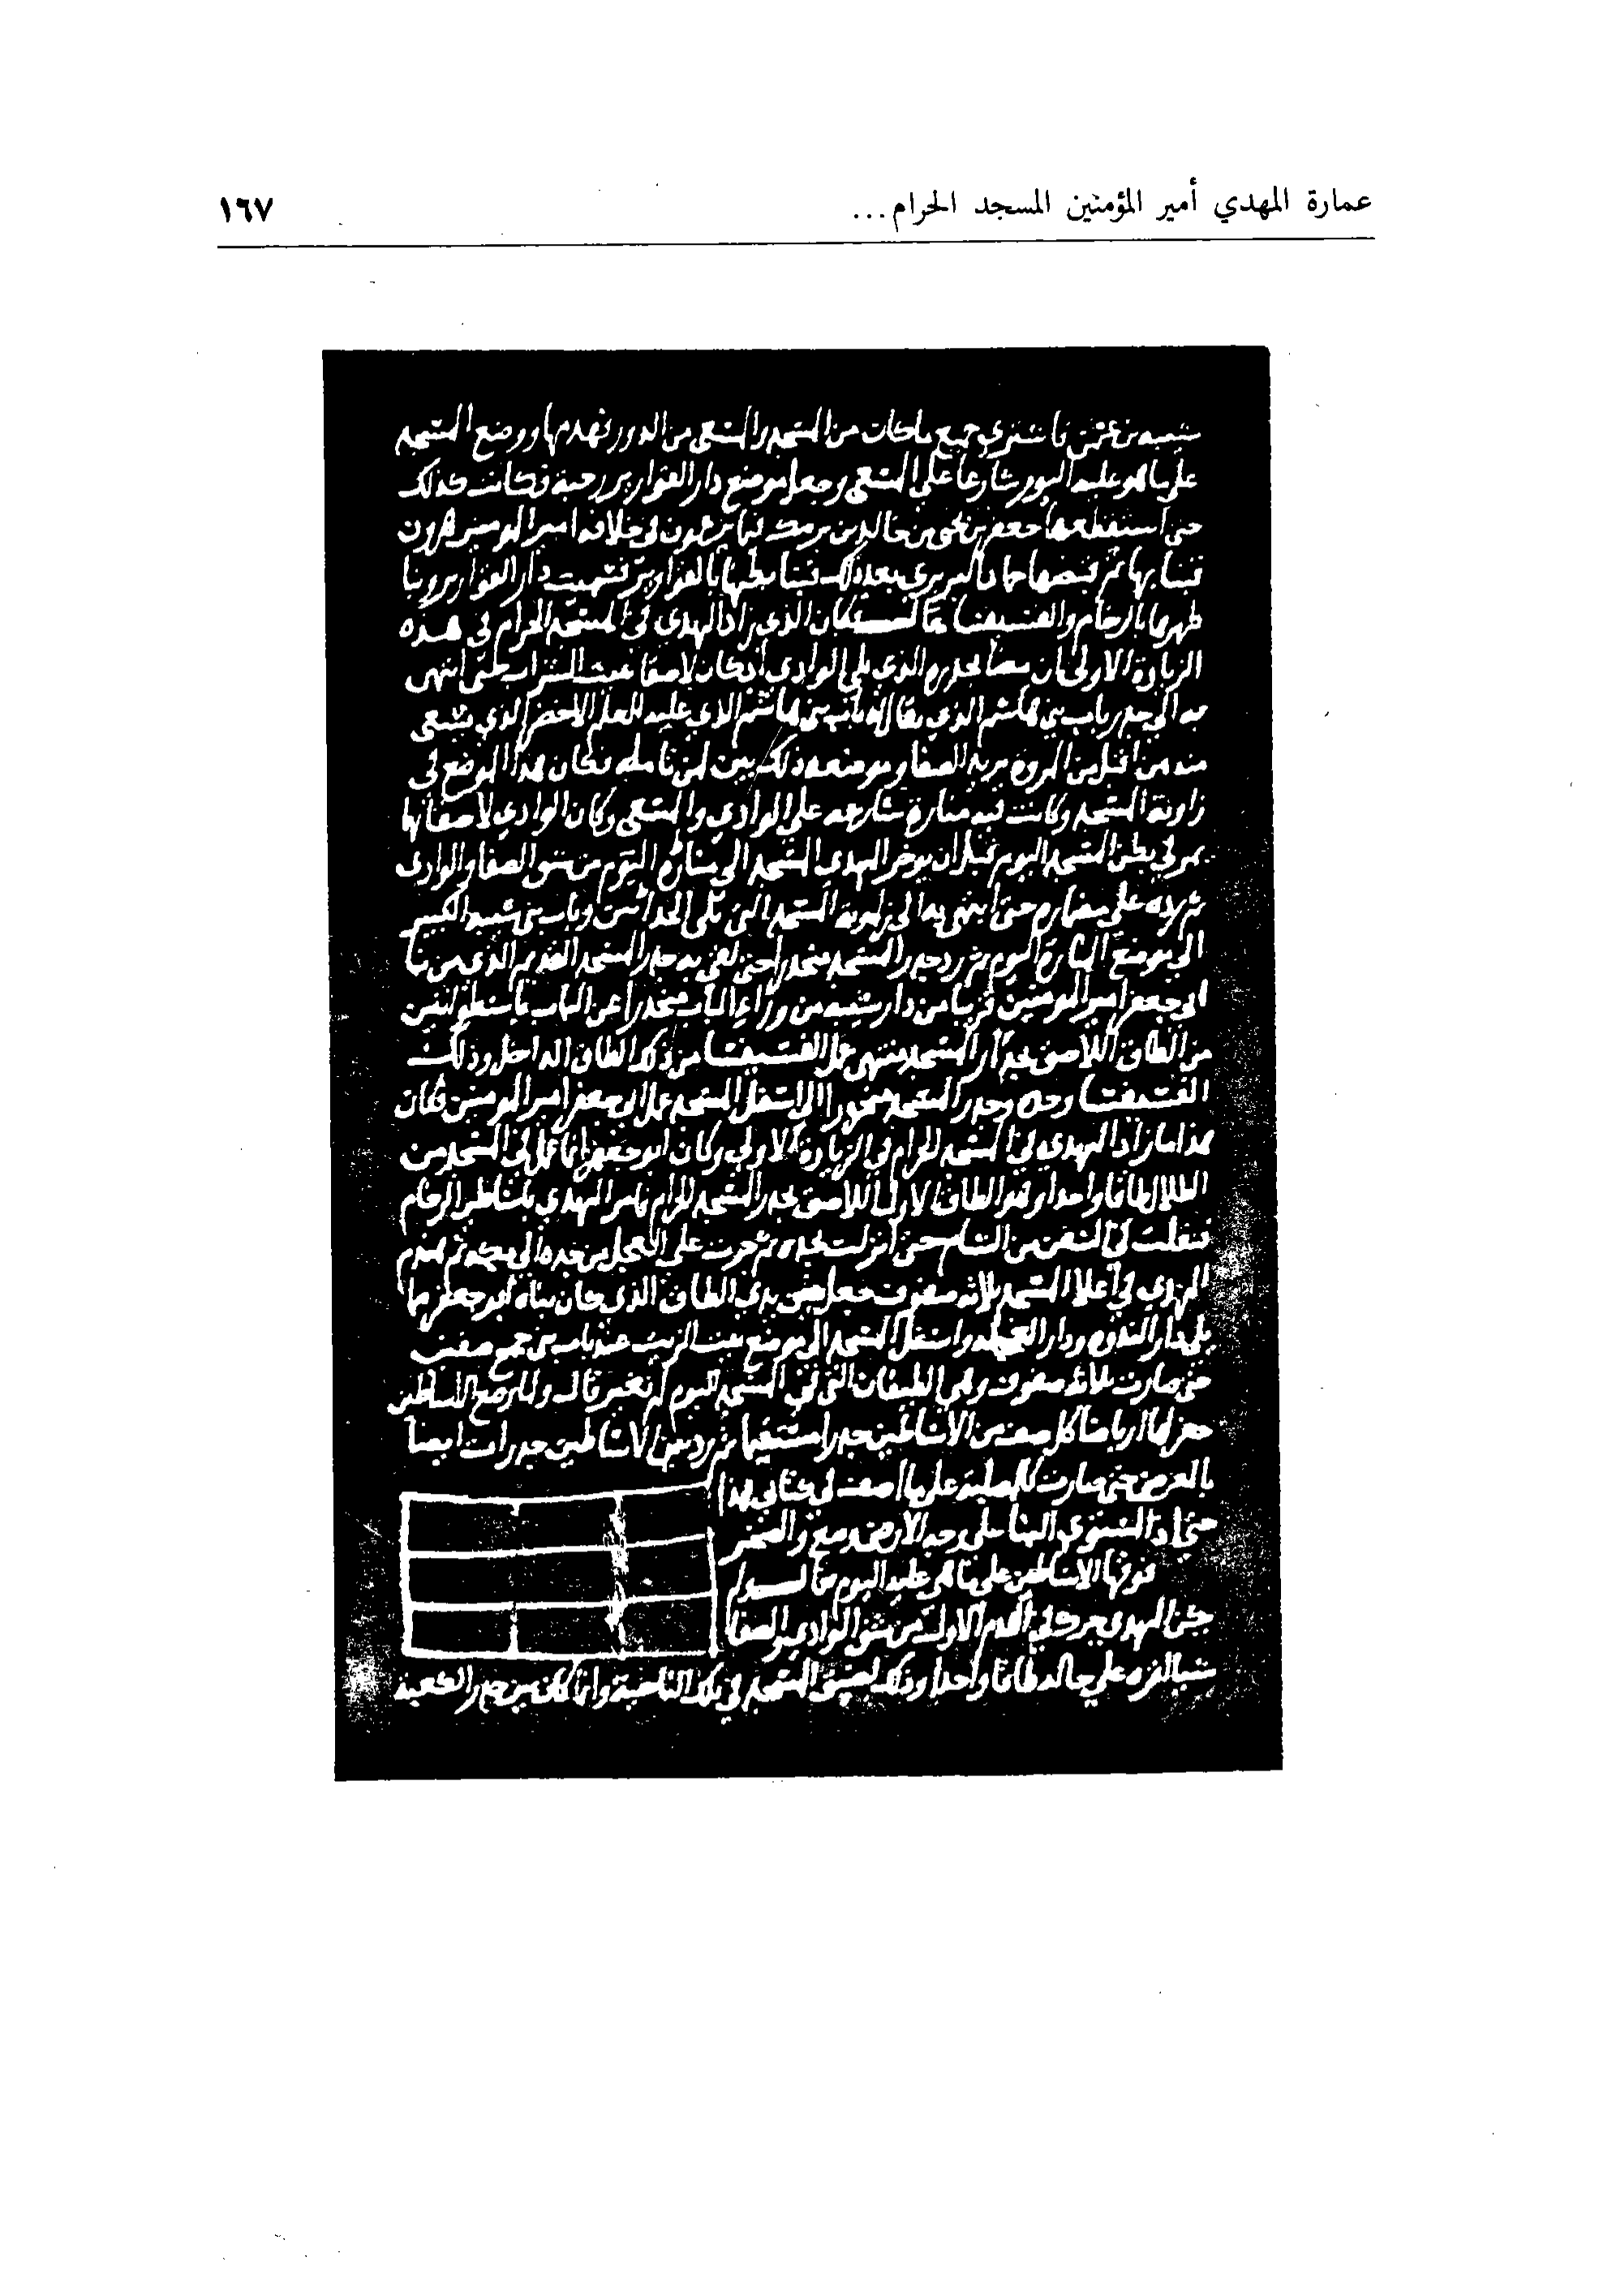 عمارة المهدي أمير المؤمنين المسجد الحرام ...
١٦٧
شيبة بن عثمن فاشتري جميع ما كان من المسجد والمسعى من الدور فهدمها ووضع المسجد
على ما هو عليه اليوم شارعا على المسعى وجعل موضع دار القوارير رحبة فكانت كذلك
حتى استقطعها جعفر بن يحيى بن خالد بن برمك في خلافة امير المومنين هرون
فبناها ثم قبضها حماد البربري بعد ذلك فبنا بطنها بالقوارير فسميت دار القوارير وبنا
ظهرها بالرخام والفسيفسا قال فكان الذي زاد المهدي في المسجد الحرام في هذه
الزيادة الاولى ان مضا بجدره الذي يلي الوادي اذ كان لاصقا ببيت الشراب حتى انتهى
به الى جدر باب بني هاشم الذي يقال له باب بني هاشم الذي عليه العلم الاخضر الذي يسعى
منه من اقبل من المروة يريد الصفا وموضعه ذلك بين لمن تامله فكان هذا الموضع في
زاوية المسجد وكانت فيه منارة شارعه على الوادي والمسعى وكان الوادي لاصقا بها
يمر في بطن المسجد اليوم قبل ان يوخر المهدي المسجد الى منتهاه اليوم من شق الصفا والوادي
ثم رده على مضاره حتى انتهى به الى زاوية المسجد التي تلي الحذائين وباب بني شيبة الكبير
الى موضع المنارة اليوم ثم رد جدر المسجد منحدرا حتى لقي به جدر المسجد القديم الذي من بنا
ابي جعفر امير المومنين قريبا من دار شيبة من وراء الباب منحدرا عن الباب باسطوانتين
من الطاق اللاصق بجدار المسجد منتهى عمل الفسيفسا من ذلك الطاق الداخل وذلك
الفسيفسا وحده وجدر المسجد منحدرا الى اسفل المسجد عمل ابي جعفر امير المومنين فكان
هذا ما زاد المهدي في المسجد الحرام في الزيادة الاولى وكان ابو جعفر انما عمل في المسجد من
الظلال طاقا واحدا وهو الطاق الاول اللاصق بجدر المسجد الحرام فامر المهدي باساطين الرخام
فنقلت في السفن من الشام حتى انزلت بجدة ثم جرت على العجل من جدة الى مكة ثم هندم
المهدي في اعلا المسجد ثلاثة صفوف جعل بين يدي الطاق الذي كان بناه ابو جعفر مما
يلي دار الندوة ودار العجلة واسفل المسجد الى موضع بيت الزيت عند باب بني جمح صفين
حتى صارت ثلاثة صفوف وهي الطيقان التي في المسجد اليوم لم تغير قال ولما وضع الاساطين
حفر لها ارباضا كل صف من الاساطين جدرا مستقيما ثم رد بين الاساطين جدرات ايضا
بالعرض حتى صارت كالصليب على ما اصف في كتابي هذا
حتى اذا استوي البنا على وجه الارض وضع
فوقها الاساطين على ما هي عليه اليوم قال
المهدي حرك في الهدم الاول من شق الوادي والصفا
شيا اقره على حاله طاقا واحدا وذلك لضيق المسجد في تلك الناحية وانما كان بين جدر الكعبة